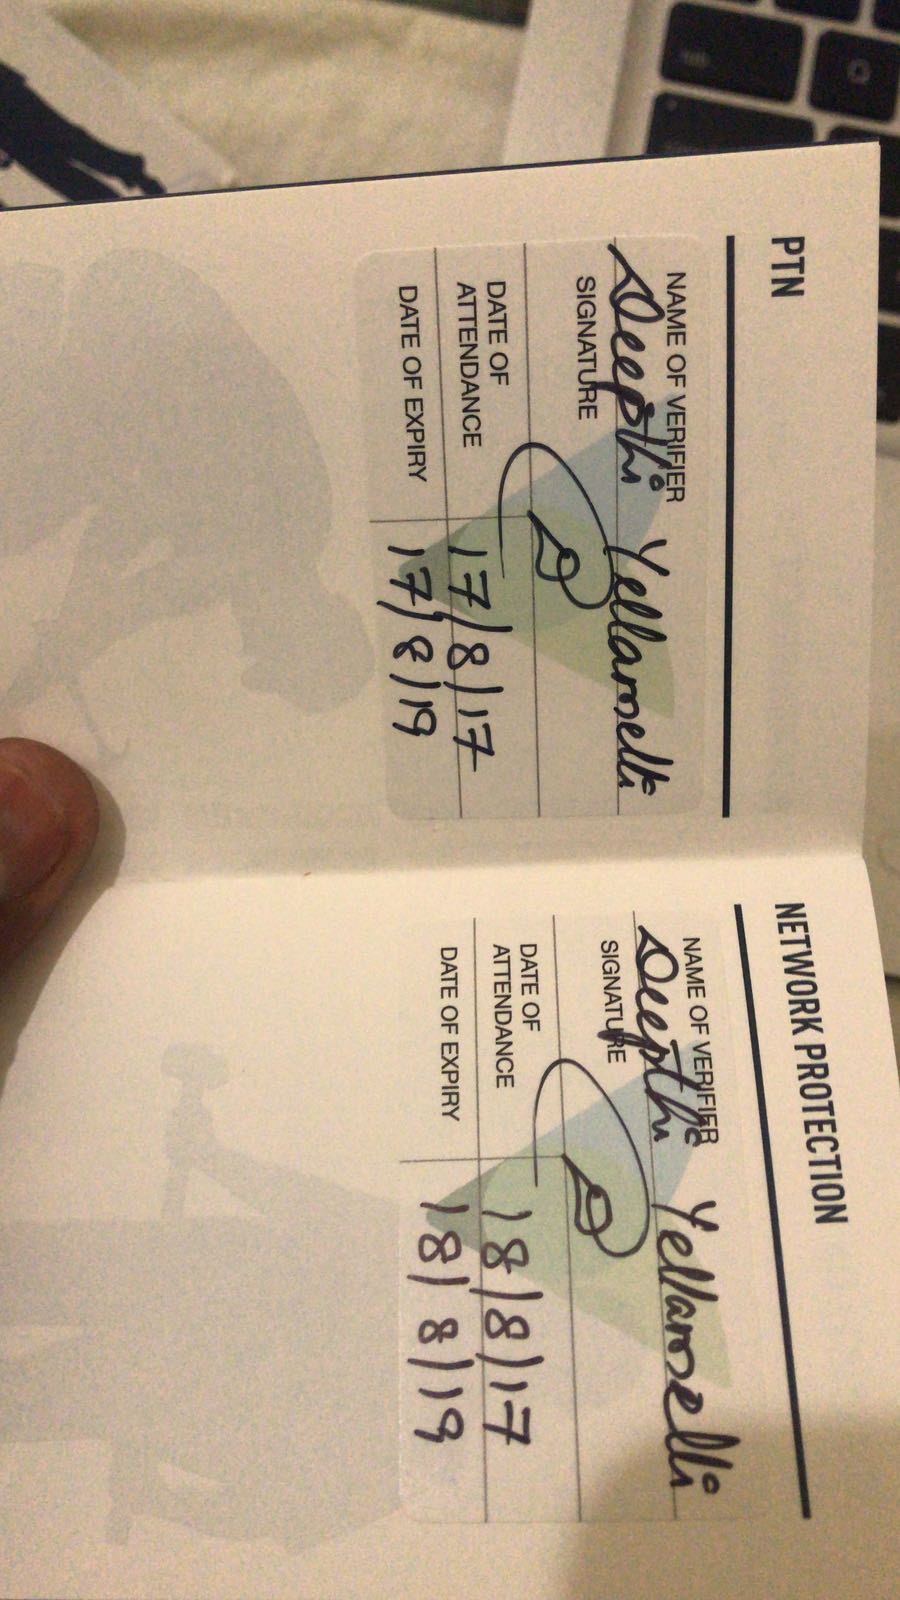 PTN
NAME OF VERIFIER
Deepthi Yellamelli
SIGNATURE
DATE OF
ATTENDANCE
17/8/17
DATE OF EXPIRY
17/8/19
NETWORK PROTECTION
NAME OF VERIFIER
Deepthi Yellamelli
SIGNATURE
DATE OF
ATTENDANCE
18/8/17
DATE OF EXPIRY
18/8/19